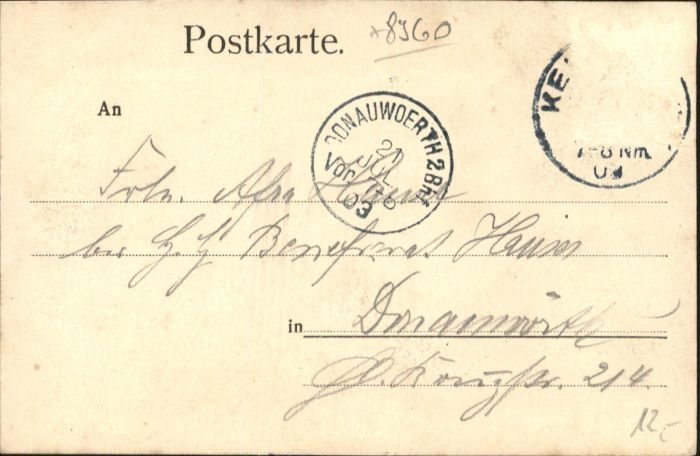 Postkarte.
*8960
An
DONAUWOERTH 2 Bhf
21
JUL
Vor. 7-8
03
KE
7-8 Nm.
03
Frln. Afra Haim
bei H. H. Benefiziat Haim
in Donauwörth
214.
12,-